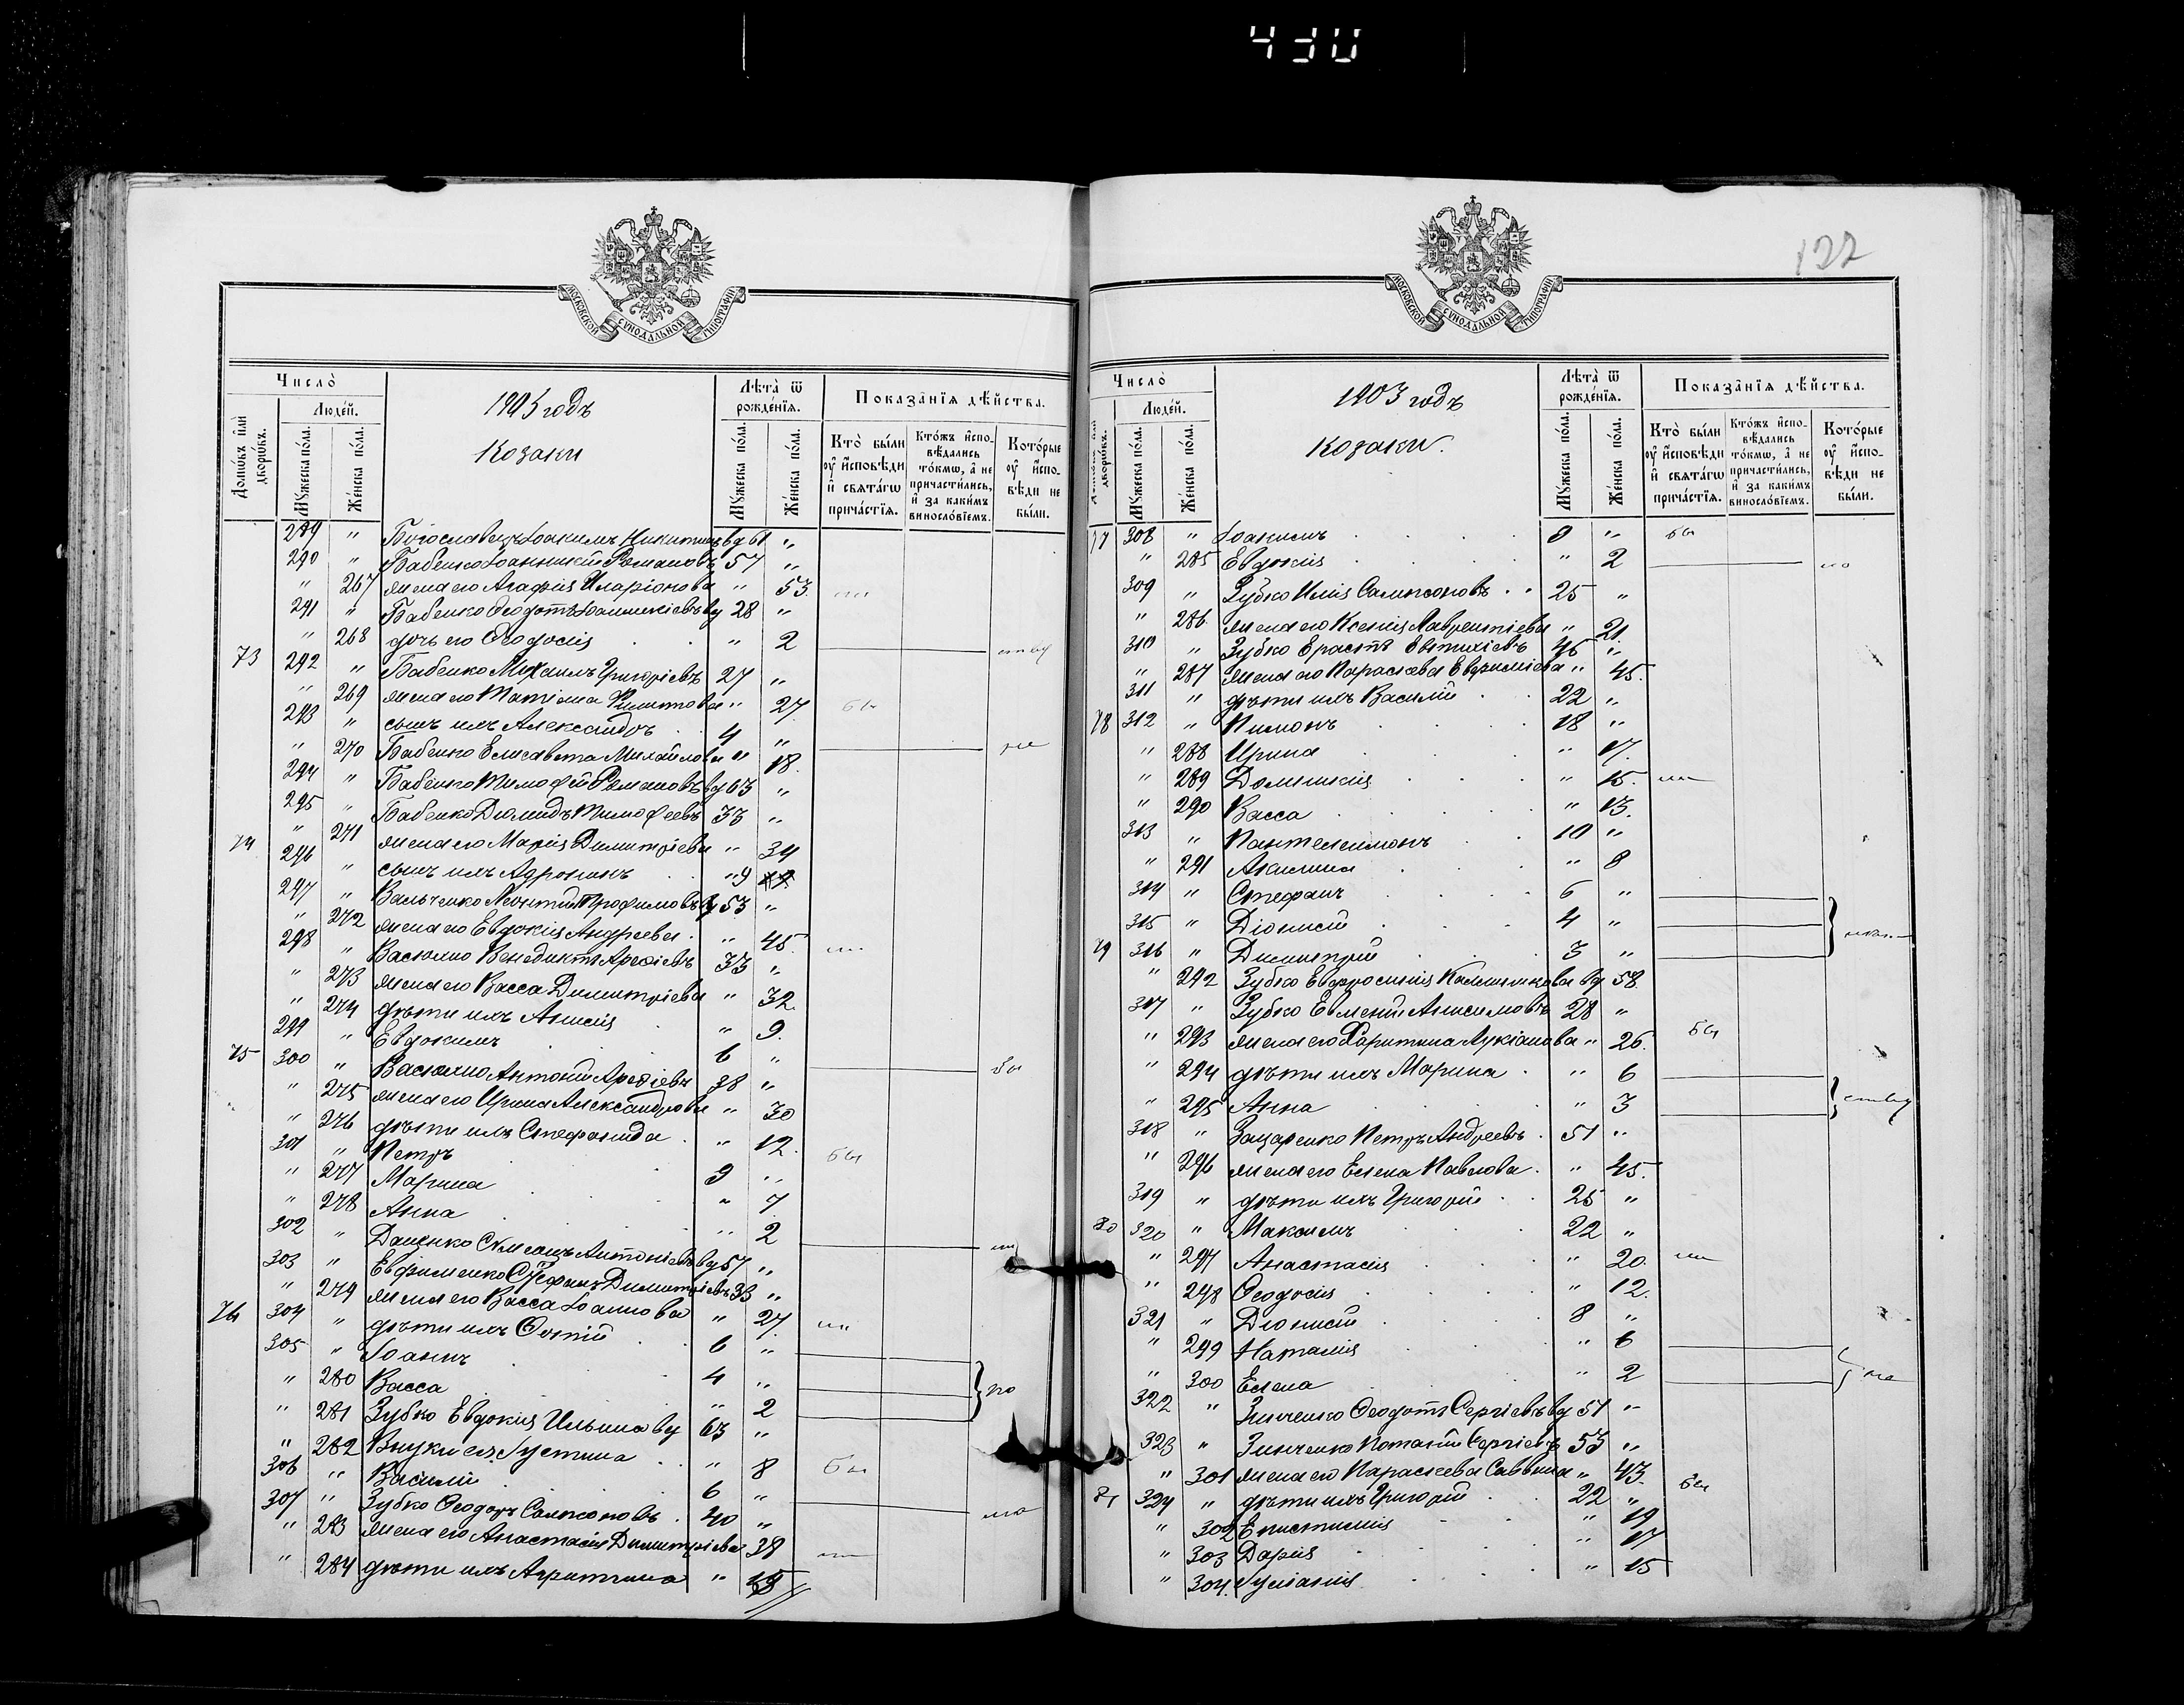 430
122
МОСКОВСКОЙ СѴНОДАЛЬНОЙ ТИПОГРАФІИ
Число̀
Людéй.
Домѡ́въ и҆лѝ дворѡ́въ.
Мꙋ́жеска по́ла.
Же́нска по́ла.
1903 годъ
Козаки
Лѣ́та ѿ рожде́нїѧ.
Мꙋ́жеска по́ла.
Же́нска по́ла.
Показа̂нїѧ дѣ́йства.
Кто̀ бы́ли ᲂу҆ и҆сповѣ́ди и҆ свѧта́гѡ прича́стїѧ.
Кто́жъ и҆спо-вѣ́дались то́кмѡ, а҆ не причасти́лись, и҆ за каки́мъ винослѡ́вїемъ.
Кото́рые ᲂу҆ и҆спо-вѣ́ди не бы́ли.
289 " Богославецъ Іоакимъ Никитинъ вд 61 "
290 " Бабенко Іоанникій Романовъ 57 "
" 267 жена его Агафія Иларіонова " 53
291 " Бабенко Ѳеодотъ Іоанникіевъ вд 28 "
" 268 дочь его Ѳеодосія " 2
73 292 " Бабенко Михаилъ Григоріевъ 27 "
" 269 жена его Татіана Филиппова " 27
293 " сынъ ихъ Александръ 4 "
" 270 Бабенко Елисавета Михайлова " 18
294 " Бабенко Тимофей Романовъ вд 63 "
295 " Бабенко Діомидъ Тимофеевъ 33 "
74 " 271 жена его Марія Димитріева " 34
296 " сынъ ихъ Адроникъ 9
297 " Вальченко Леонтій Трофимовъ 53 "
" 272 жена его Евдокія Андреева " 45
298 " Васюхно Венедиктъ Арефіевъ 33 "
" 273 жена его Васса Димитріева " 32
" 274 дѣти ихъ Анисія " 9
299 " Евдокимъ 6 "
75 300 " Васюхно Антоній Арефіевъ 38 "
" 275 жена его Ирина Александрова " 30
" 276 дѣти ихъ Стефанида " 12
301 " Петръ 9 "
" 277 Марина " 7
" 278 Анна " 2
302 " Даценко Антоніевъ вд 57 "
303 " Евфименко Стефанъ Димитріевъ 33 "
" 279 жена его Васса Іоаннова " 27
76 304 " дѣти ихъ Фотій 6 "
305 " Іоаннъ 4 "
" 280 Васса " 2
" 281 Зубко Евдокія Ильина вд 63 "
" 282 Внуки ея Іустина " 8
306 " Василій 6 "
307 " Зубко Ѳеодоръ Сампсоновъ 40 "
" 283 жена его Анастасія Димитріева 38
" 284 дѣти ихъ Агриппина " 15
Число̀
Людéй.
Домѡ́въ и҆лѝ дворѡ́въ.
Мꙋ́жеска по́ла.
Же́нска по́ла.
1903 годъ
Козаки.
Лѣ́та ѿ рожде́нїѧ.
Мꙋ́жеска по́ла.
Же́нска по́ла.
Показа̂нїѧ дѣ́йства.
Кто̀ бы́ли ᲂу҆ и҆сповѣ́ди и҆ свѧта́гѡ прича́стїѧ.
Кто́жъ и҆спо-вѣ́дались то́кмѡ, а҆ не причасти́лись, и҆ за каки́мъ винослѡ́вїемъ.
Кото́рые ᲂу҆ и҆спо-вѣ́ди не бы́ли.
77 308 " Іоакимъ 9 " бы
" 285 Евдокія " 2
309 " Зубко Илія Сампсоновъ 25 "
" 286 жена его Ксенія Лаврентіева " 21
310 " Зубко Ерастъ Евтихіевъ 46 "
" 287 жена его Параскева Евфиміева " 45
311 " дѣти ихъ Василій 22 "
78 312 " Пимонъ 18 "
" 288 Ирина " 17
" 289 Домникія " 15
" 290 Васса " 13
313 " Пантелеимонъ 10 "
" 291 Акилина " 8
314 " Стефанъ 6 "
315 " Діонисій 4 "
79 316 " Димитрій 3 "
" 292 Зубко Евфросинія Каллиникова вд 58
317 " Зубко Евменій Анисимовъ 28 "
" 293 жена его Харитина Лукіанова " 26 бы
" 294 дѣти ихъ Марина " 6
" 295 Анна " 3
318 " Зацаренко Петръ Андреевъ 51 "
" 296 жена его Елена Павлова " 45
319 " дѣти ихъ Григорій 25 "
80 320 " Максимъ 22 "
" 297 Анастасія " 20
" 298 Ѳеодосія " 12
321 " Діонисій 8 "
" 299 Наталія " 6
" 300 Елена " 2
322 " Зинченко Ѳеодотъ Сергіевъ вд 51 "
323 " Зинченко Потапій Сергіевъ 53 "
" 301 жена его Параскева Саввина " 43
81 324 " дѣти ихъ Григорій 22 " бы
" 302 Епистимія " 19
" 303 Дарія " 17
" 304 Іуліанія " 15